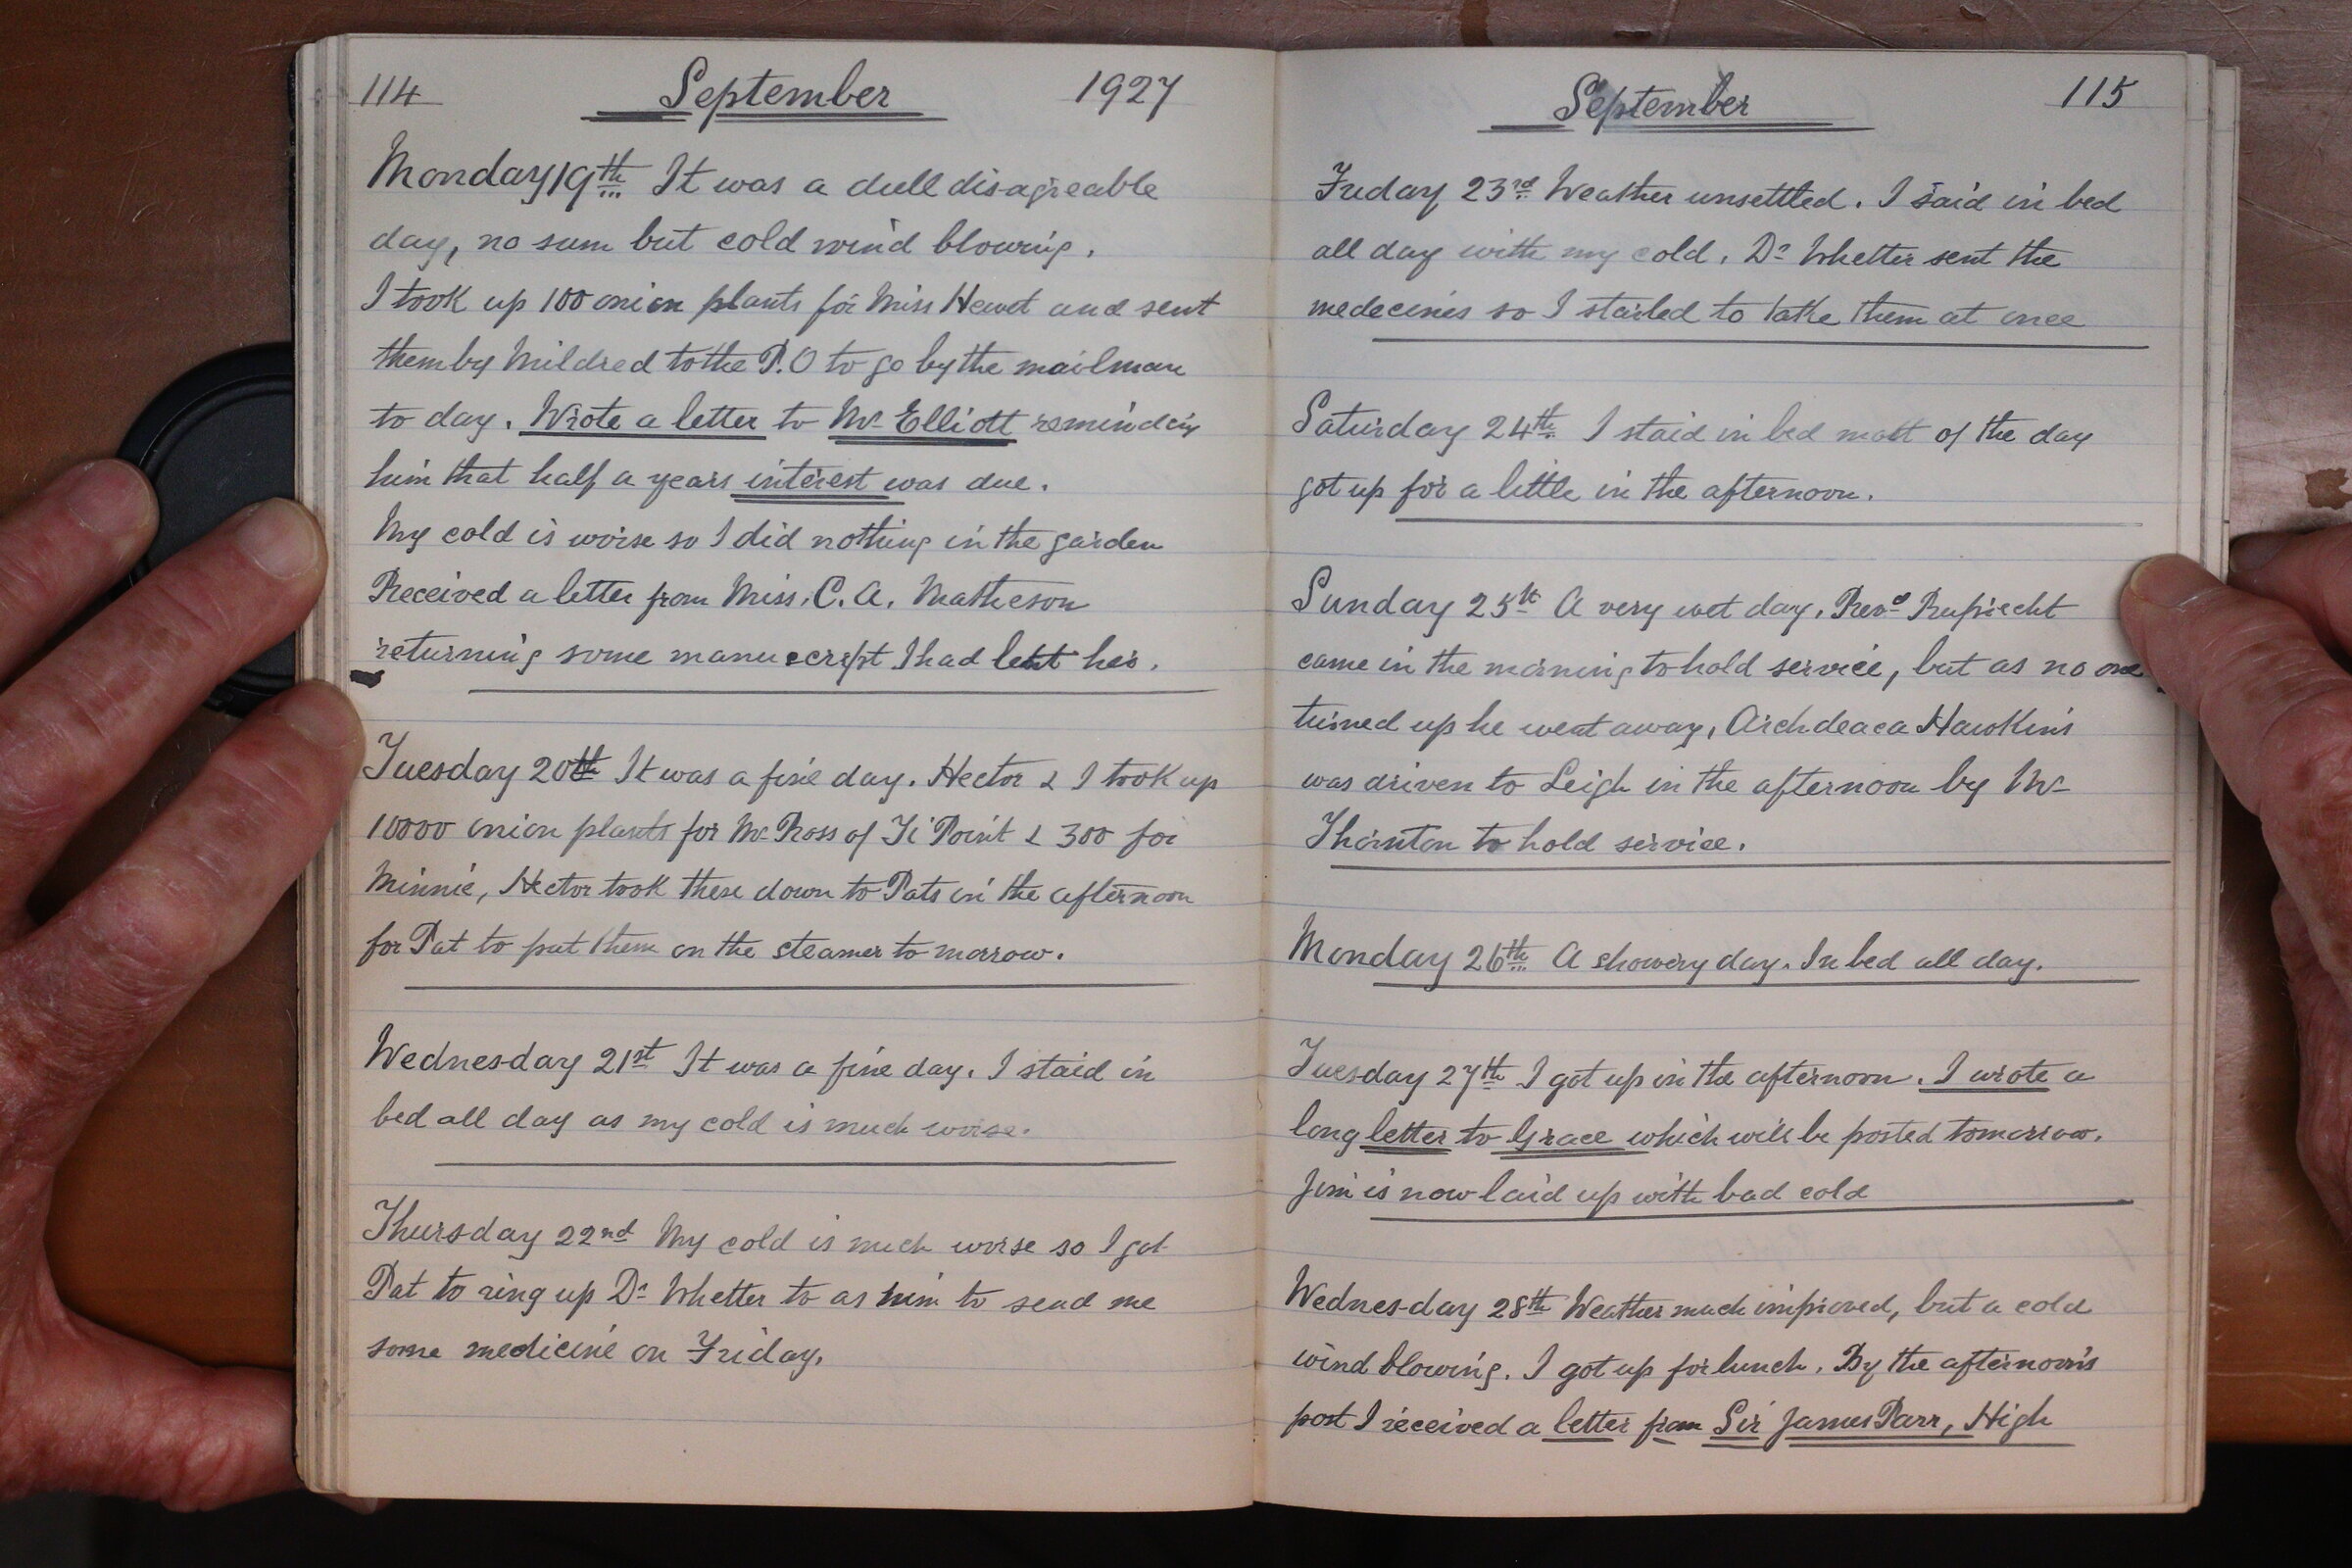 114 September 1927
Monday 19th It was a dull disagreeable
day, no sun but cold wind blowing.
I took up 100 onion plants for Miss Hewet and sent
them by Mildred to the P.O to go by the mailman
to day. Wrote a letter to Mr Elliott reminding
him that half a years interest was due.
My cold is worse so I did nothing in the garden
Received a letter from Miss. C. A. Matheson
returning some manuscript I had lent her.
Tuesday 20th It was a fine day. Hector & I took up
10000 onion plants for Mr Ross of Ti Point & 300 for
Minnie, Hector took these down to Pats in the afternoon
for Pat to put them on the steamer to morrow.
Wednesday 21st It was a fine day. I staid in
bed all day as my cold is much worse.
Thursday 22nd My cold is much worse so I got
Pat to ring up Dr Whetter to as him to send me
some medicine on Friday.
September 115
Friday 23rd Weather unsettled. I said in bed
all day with my cold. Dr Whetter sent the
medecines so I started to take them at once
Saturday 24th I staid in bed most of the day
got up for a little in the afternoon.
Sunday 25th A very wet day. Revd Ruprecht
came in the morning to hold service, but as no one
turned up he went away, Archdeaca Hawkins
was driven to Leigh in the afternoon by Mr
Thornton to hold service.
Monday 26th A showery day. In bed all day.
Tuesday 27th I got up in the afternoon. I wrote a
long letter to Grace which will be posted tomorrow.
Jim is now laid up with bad cold
Wednesday 28th Weather much improved, but a cold
wind blowing. I got up for lunch. By the afternoon's
post I received a letter from Sir James Parr, High